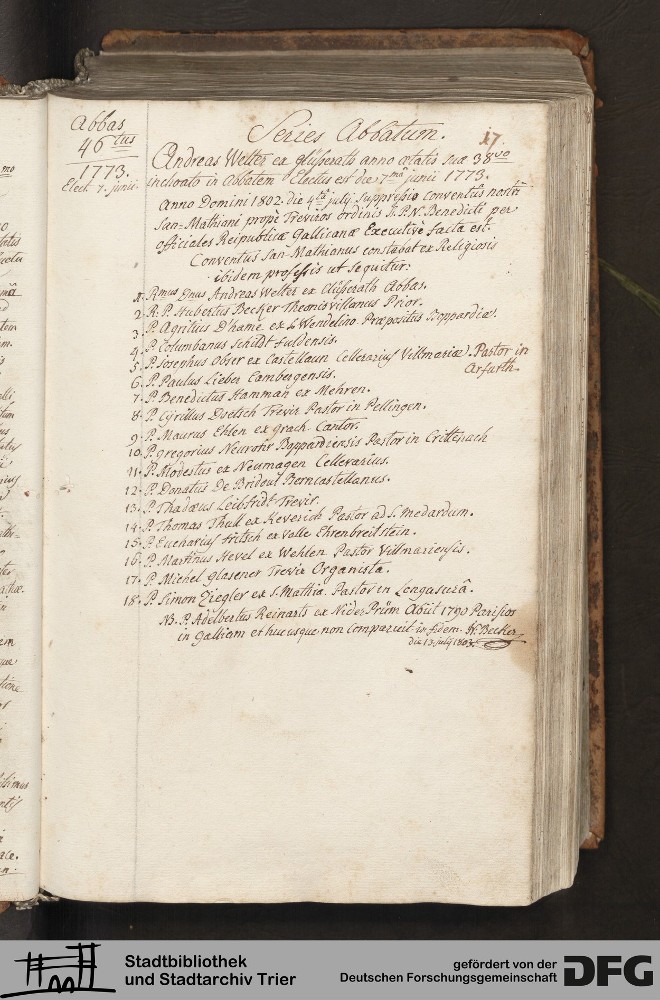 Abbas
46 tus
1773.
Elect. 7. junii
17
Series Abbatum.
Andreas Welter ex Glijserath anno ætatis suæ 38vo
inchoato in Abbatem Electus est die 7ma junii 1773.
Anno Domini 1802. die 4ta julij suppressio Conventus nostri
San-Mathiani propè Treviros ordinis S. P. N. Benedicti per
officiales Reipublicæ Gallicanæ Executivè facta est.
Conventus San-Mathianus constabat ex Religiosis
ibidem professis ut sequitur:
1. Rmus Dnus Andreas Welter ex Glijserath Abbas.
2. R. P. Hubertus Becker Theonisvillanus Prior.
3. P. Agritius Dhame ex S. Wendelino. Præpositus Boppardiæ.
4. P. Columbanus Schildt fuldensis.
5. P. Josephus Obser ex Castellaun Cellerarius Villmariæ. Pastor in
Arfurth.
6. P. Paulus Lieber Cambergensis.
7. P. Benedictus Hamman ex Mehren.
8. P. Cyrillus Dietsch Trevir Pastor in Pellingen.
9. P. Maurus Ehlen ex grach. Cantor.
10. P. gregorius Neurohr Boppardiensis Pastor in Crittenach
11. P. Modestus ex Neumagen Cellerarius.
12. P. Donatus De Bridoul Berncastellanus.
13. P. Thadæus Leibfridt Trevir.
14. P. Thomas Thull ex Keverich Pastor ad S. Medardum.
15. P. Eucharius fritsch ex valle Ehrenbreitstein.
16. P. Martinus Hevel ex Wehlen Pastor Villmariensis.
17. P. Michel glasener Trevir Organista.
18. P. Simon Ziegler ex S. Mathia. Pastor in Longasurâ.
NB. P. Adelbertus Reinarts ex Nider Prüm Abiit 1790 Parisios
in Galliam et hucusque non Comparuit in fidem. H. Becker
die 13 julij 1803.
Stadtbibliothek
und Stadtarchiv Trier
gefördert von der
Deutschen Forschungsgemeinschaft
DFG